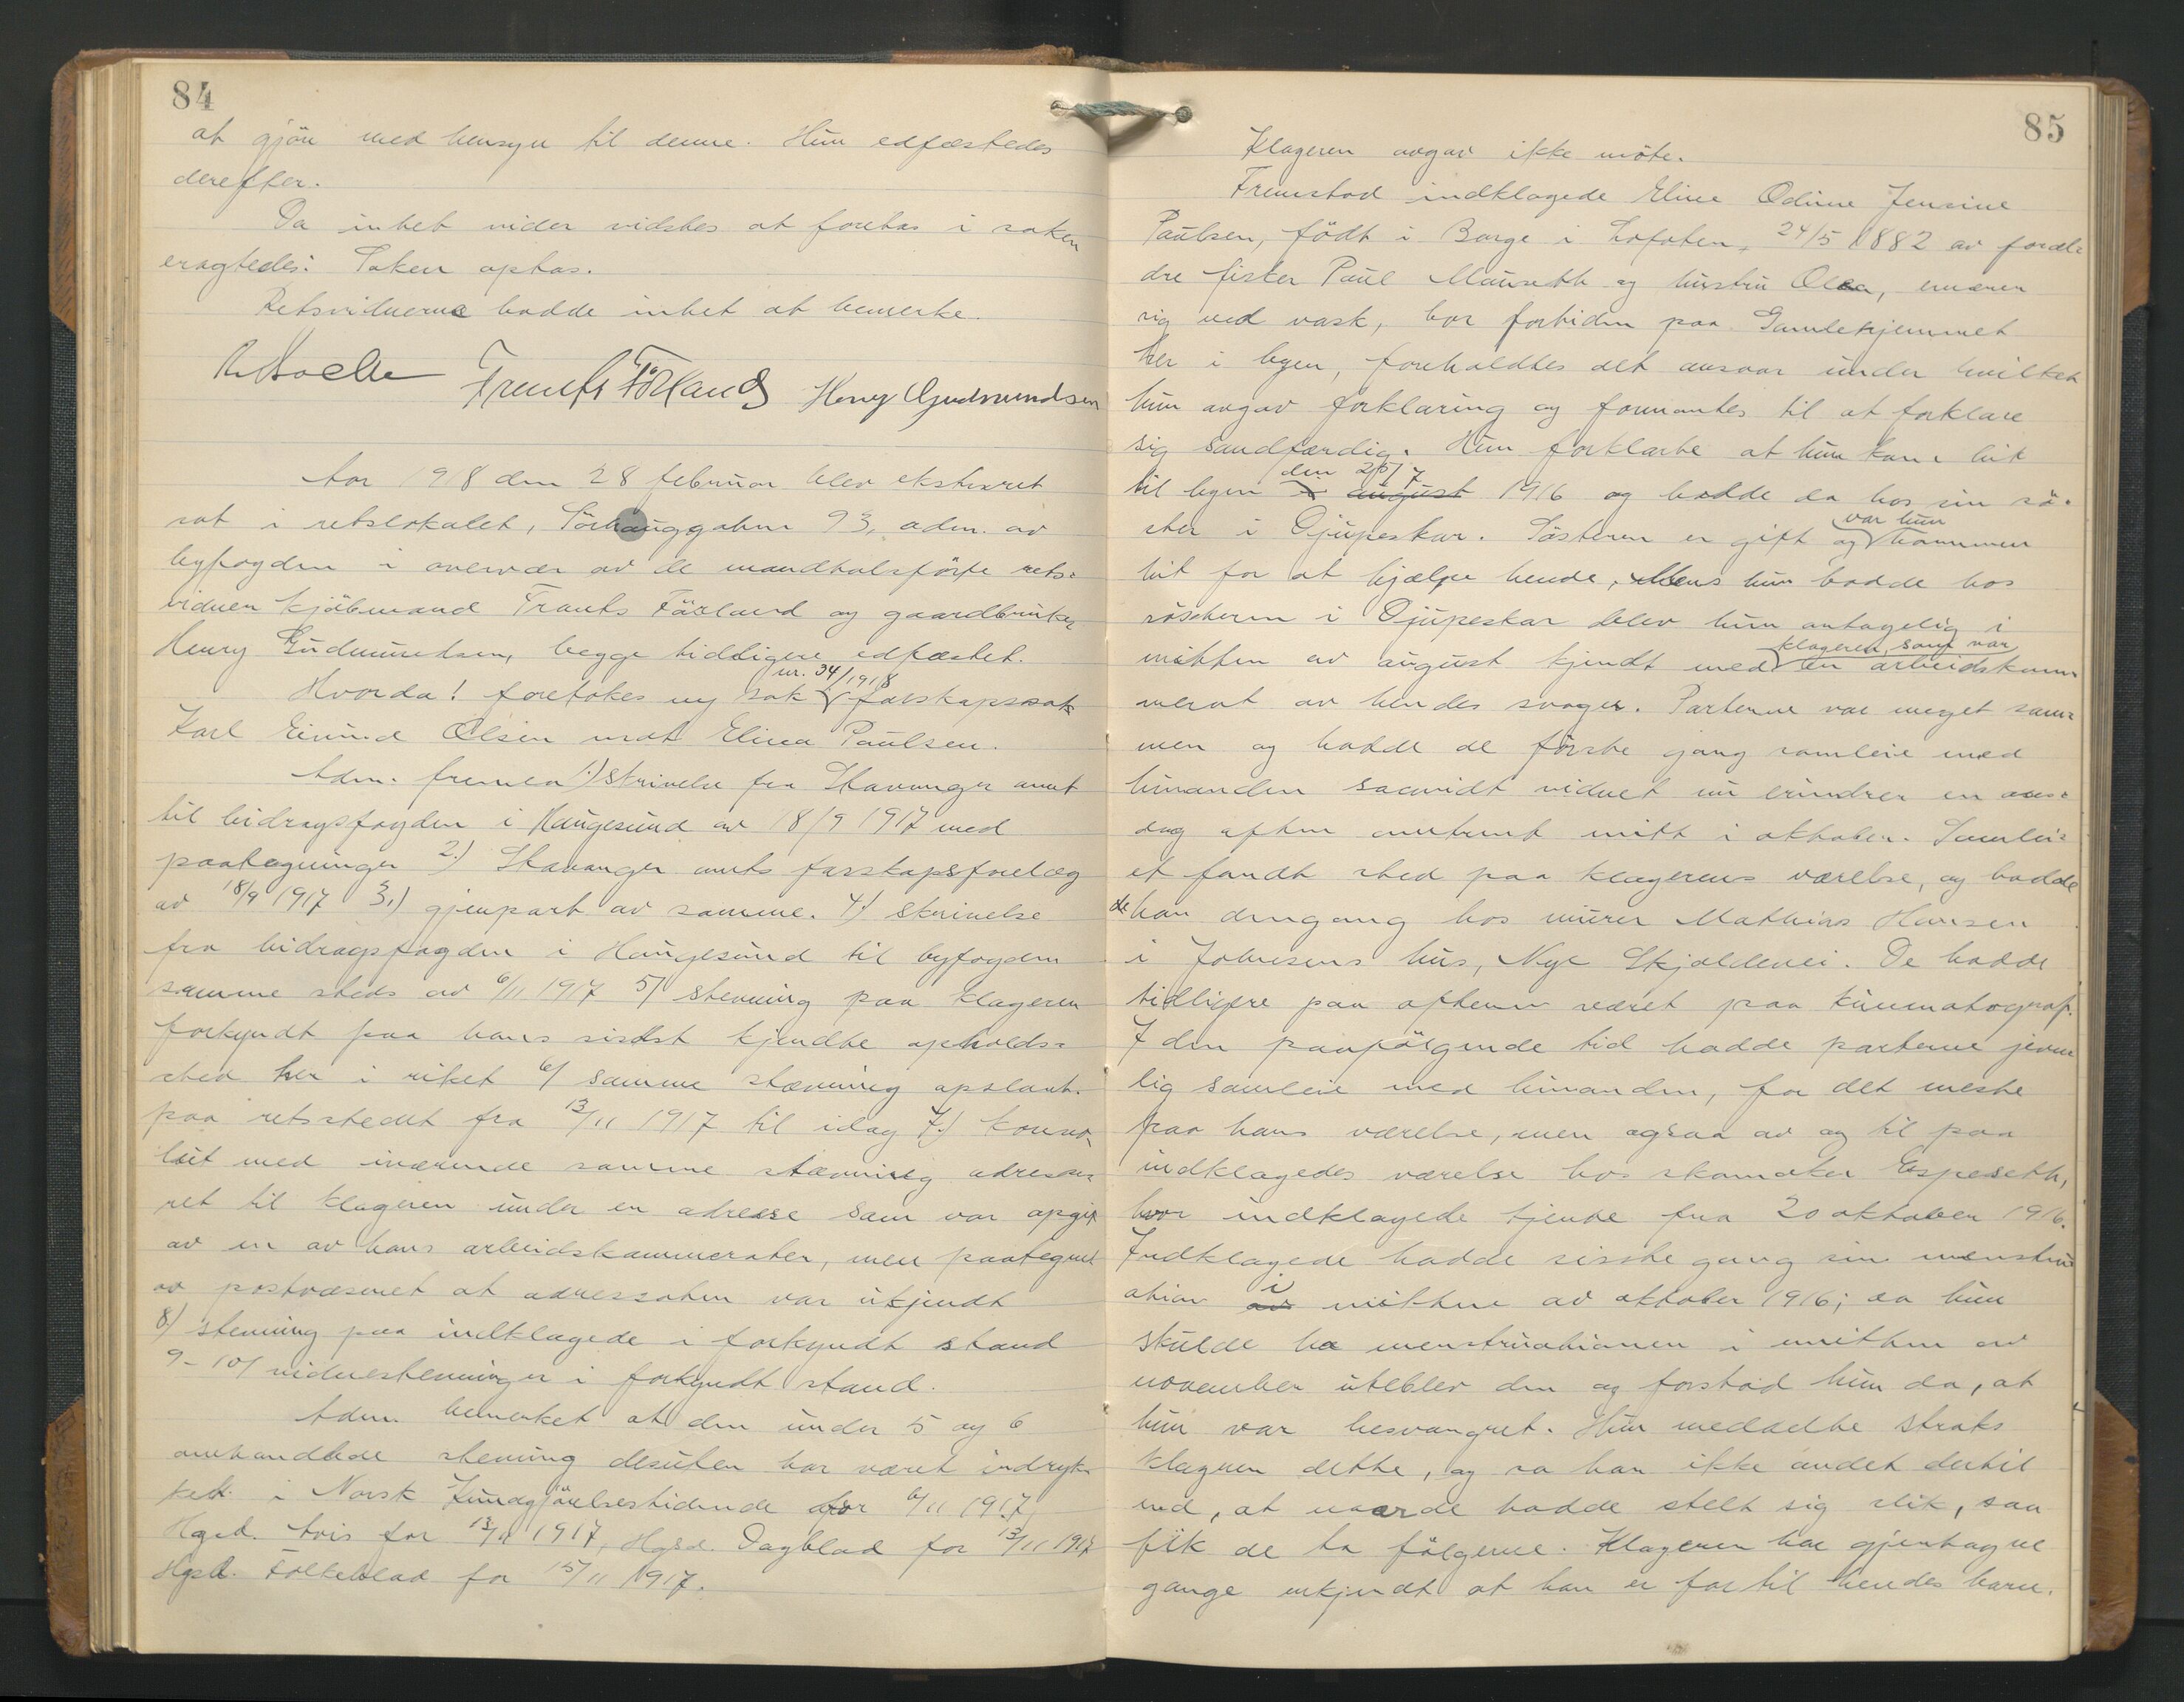 84
at gjöre med hensyn til denne. Hun edfæstedes
derefter.
Da intet vider vidstes at foretas i saken
eragtedes: Saken optas.
Retsvidnerne hadde intet at bemerke.
Frants Förland Henry Gudmundsen
Aar 1918 den 28 februar blev ekstraret
sat i retslokalet, Sörhauggaten 93, adm. av
byfogden i overvær av de mandtalsförte rets-
vidner kjöbmand Frants Förland og gaardbruker
Henry Gudmundsen, begge tidligere edfæstet.
Hvorda! foretokes ny sak nr. 34/1918 farskapssak
Karl Eivind Olsen mot Elina Paulsen.
Adm. fremla 1.) skrivelse fra Stavanger amt
til bidragsfogden i Haugesund av 18/9 1917 med
paategninger 2.) Stavanger amts farskapsforelæg
av 18/9 1917 3.) gjenpart av samme. 4) skrivelse
fra bidragsfogden i Haugesund til byfogden
samme steds av 6/11 1917 5) stevning paa klageren
forkyndt paa hans sistst kjendte opholds-
sted her i riket 6) samme stævning opslaat
paa retsstedet fra 13/11 1917 til idag 7.) konvo-
lut med iværende samme stævning adresse-
ret til klageren under en adresse som var opgit
av en av hans arbeidskammerater, men paategnet
av postvæsenet at adressaten var ukjendt
8) stevning paa indklagede i forkyndt stand
9-10) vidnestevninger i forkyndt stand.
Adm. bemerket at den under 5 og 6
omhandlede stevning desuten har været indryk-
ket i Norsk Kundgjörelsestidende for 6/11 1917,
Hgsd. Avis for 13/11 1917, Hgsd. Dagblad for 13/11 1917
Hgsd. Folkeblad for 15/11 1917.
85
Klageren avgav ikke möte.
Fremstod indklagede Eline Odine Jensine
Paulsen, födt i Borge i Lofoten, 24/5 1882 av foræl-
dre fisker Paul Mauseth og hustru Olea, ernærer
sig ved vask, bor fortiden paa Gamlehjemmet
her i byen, foreholdtes det ansvar under hvilket
hun avgav forklaring og formantes til at forklare
sig sandfærdig. Hun forklarte at hun kom hit
til byen i august den 25/7 1916 og bodde da hos sin sö-
ster i Djupeskar. Sösteren er gift og var hun kommen
hit for at hjælpe hende, Mens hun bodde hos
sösteren i Djupeskar blev hun antagelig i
mitten av august kjendt med klageren, som var en arbeidskam-
merat av hendes svoger. Parterne var meget sam-
men og hadde de förste gang samleie med
hinanden saavidt vidnet nu erindrer en ons-
dag aften omtrent mitt i oktober. Samlei-
et fandt sted paa klagerens værelse, og bodde
de han dengang hos murer Mathias Hansen
i Johnsens hus, Nye Skjoldevei. De hadde
tidligere paa aftenen været paa kinematograf.
I den paafölgende tid hadde parterne jevn-
lig samleie med hinanden, for det meste
paa hans værelse, men ogsaa av og til paa
indklagedes værelse hos skomaker Espeseth,
hvor indklagede tjente fra 20 oktober 1916.
Indklagede hadde sisste gang sin menstru-
ation av i mitten av oktober 1916; da hun
skulde ha menstruationen i mitten av
november uteblev den og forstod hun da, at
hun var besvangret. Hun meddelte straks
klageren dette, og sa han ikke andet dertil
end, at naar de hadde stelt sig slik, saa
fik de ta fölgerne. Klageren har gjentagne
gange erkjendt at han er far til hendes barn.